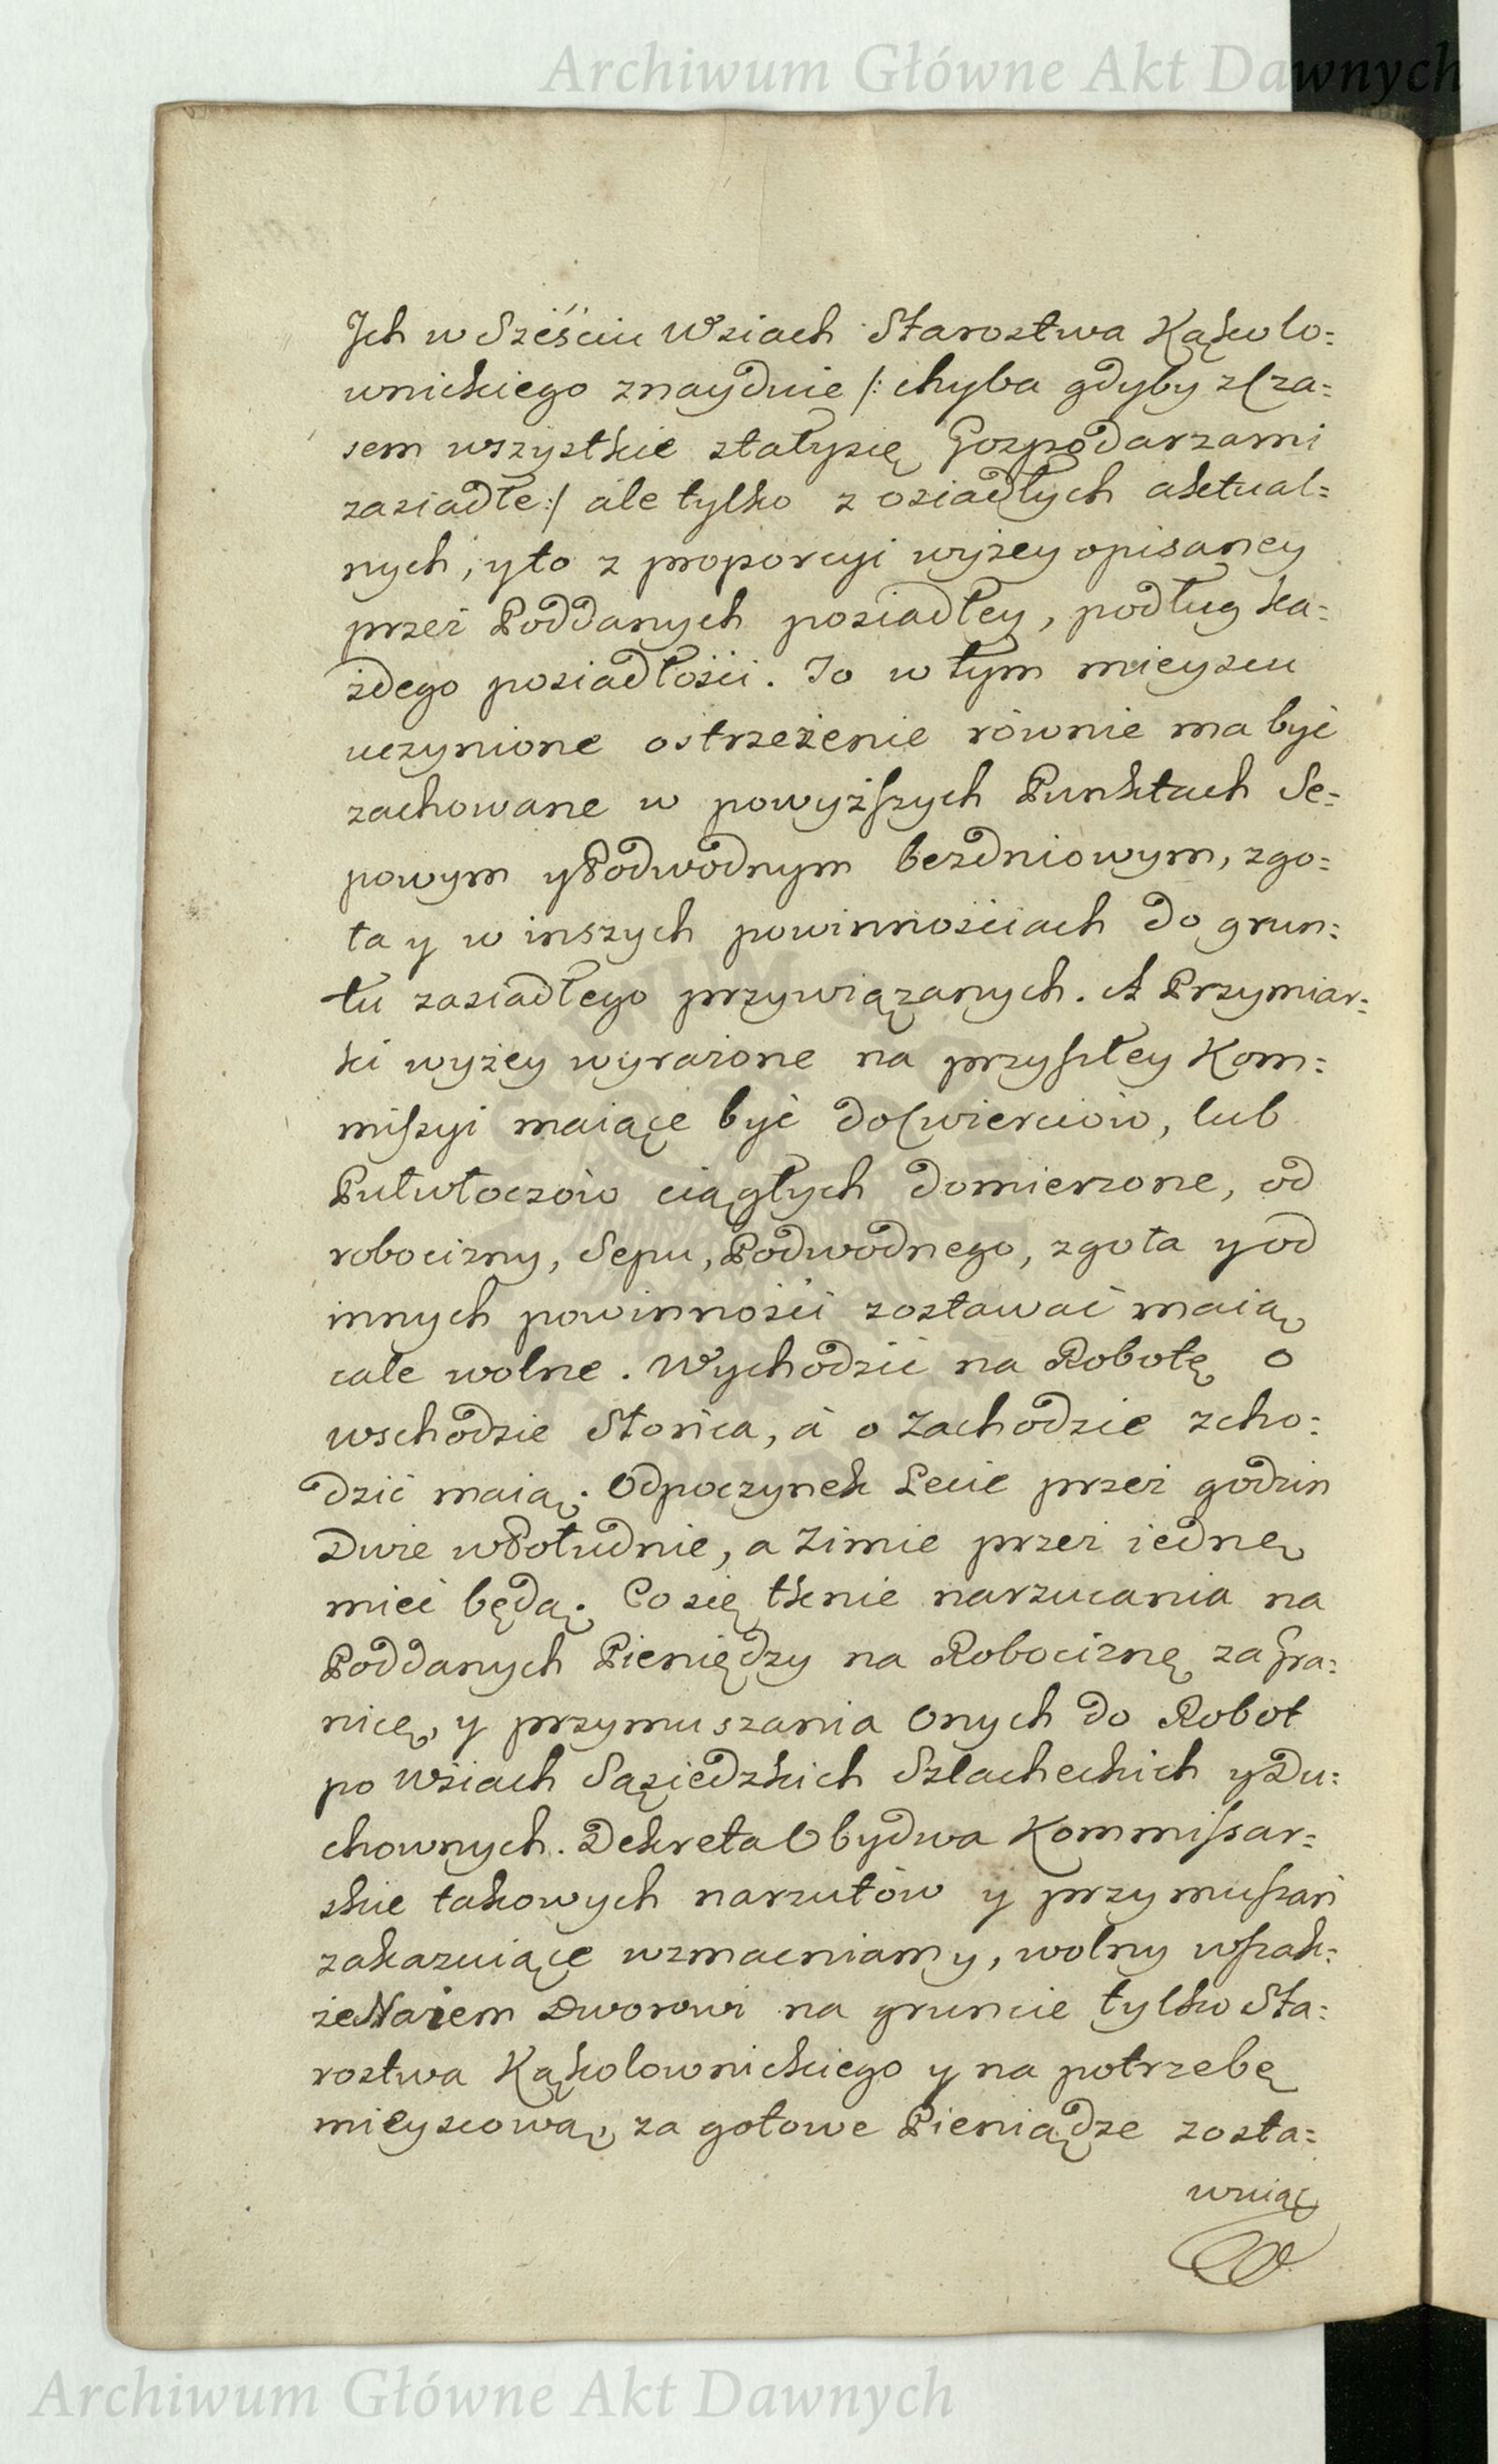 Archiwum Główne Akt Dawnych
Jch w Sześciu Wsiach Starostwa Kąkolo=
wnickiego znayduie /: chyba gdyby z Cza=
sem wszystkie stałysię Gospodarzami
zasiadłe :/ ale tylko z osiadłych aktual=
nych, yto z proporcyi wyżey opisaney
przez Poddanych posiadłey, podług ka=
żdego posiadłości. To w tym mieyscu
uczynione ostrzeżenie równie ma być
zachowane w powyższych Punktach Se=
powym y Podwodnym bezdniowym, zgo=
ła y w inszych powinnościach do grun=
tu zasiadłego przywiązanych. A Przymiar=
ki wyżey wyrażone na przyszłey Kom=
missyi maiące być do Cwierciów, lub
Pułwłoczów ciągłych domierzone, od
robocizny, Sepu, Podwodnego, zgoła y od
innych powinności zostawać maią
cale wolne. Wychodzić na Robotę o
wschodzie Słońca, á o Zachodzie zcho=
dzić maią. Odpoczynek Lecie przez godzin
Dwie w Południe, a Zimie przez iednę
mieć będą. Co się tknie narzucania na
Poddanych Pieniędzy na Robociznę za Gra=
nicę, y przymuszania Onych do Robot
po Wsiach Sąsiedzkich Szlacheckich y Du=
chownych. Dekreta Obydwa Kommissar=
skie takowych narzutów y przymuszań
zakazuiące wzmacniamy, wolny wszak=
że Naiem Dworowi na gruncie tylko Sta=
rostwa Kąkolownickiego y na potrzebę
mieyscową, za gotowe Pieniądze zosta=
wuiąc
Archiwum Główne Akt Dawnych